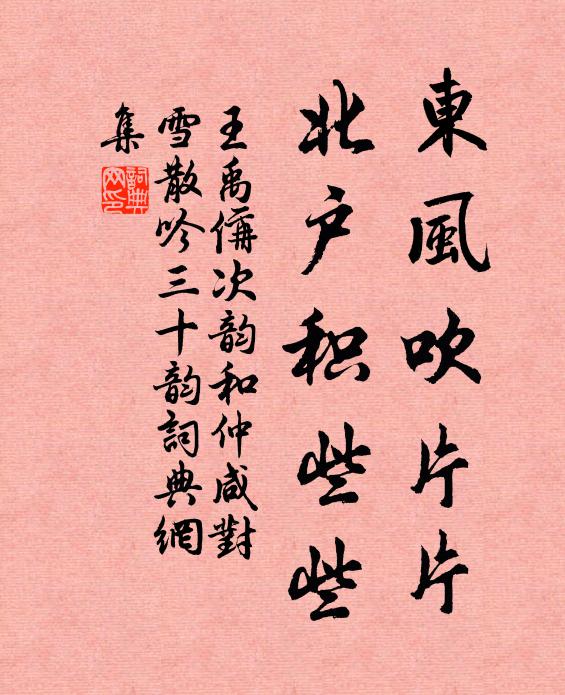 東風吹片片
北户积些些
王禹偁次韵和仲咸對
雪散吟三十韵詞典網
集
詞典網印